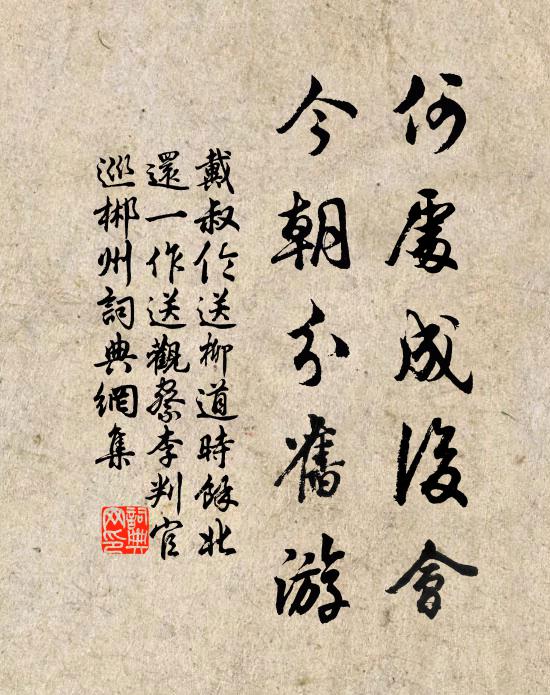 何處成後會
今朝分舊游
戴叔伦送柳道時餘北
還一作送觀察李判官
巡郴州詞典網集
詞典
网印